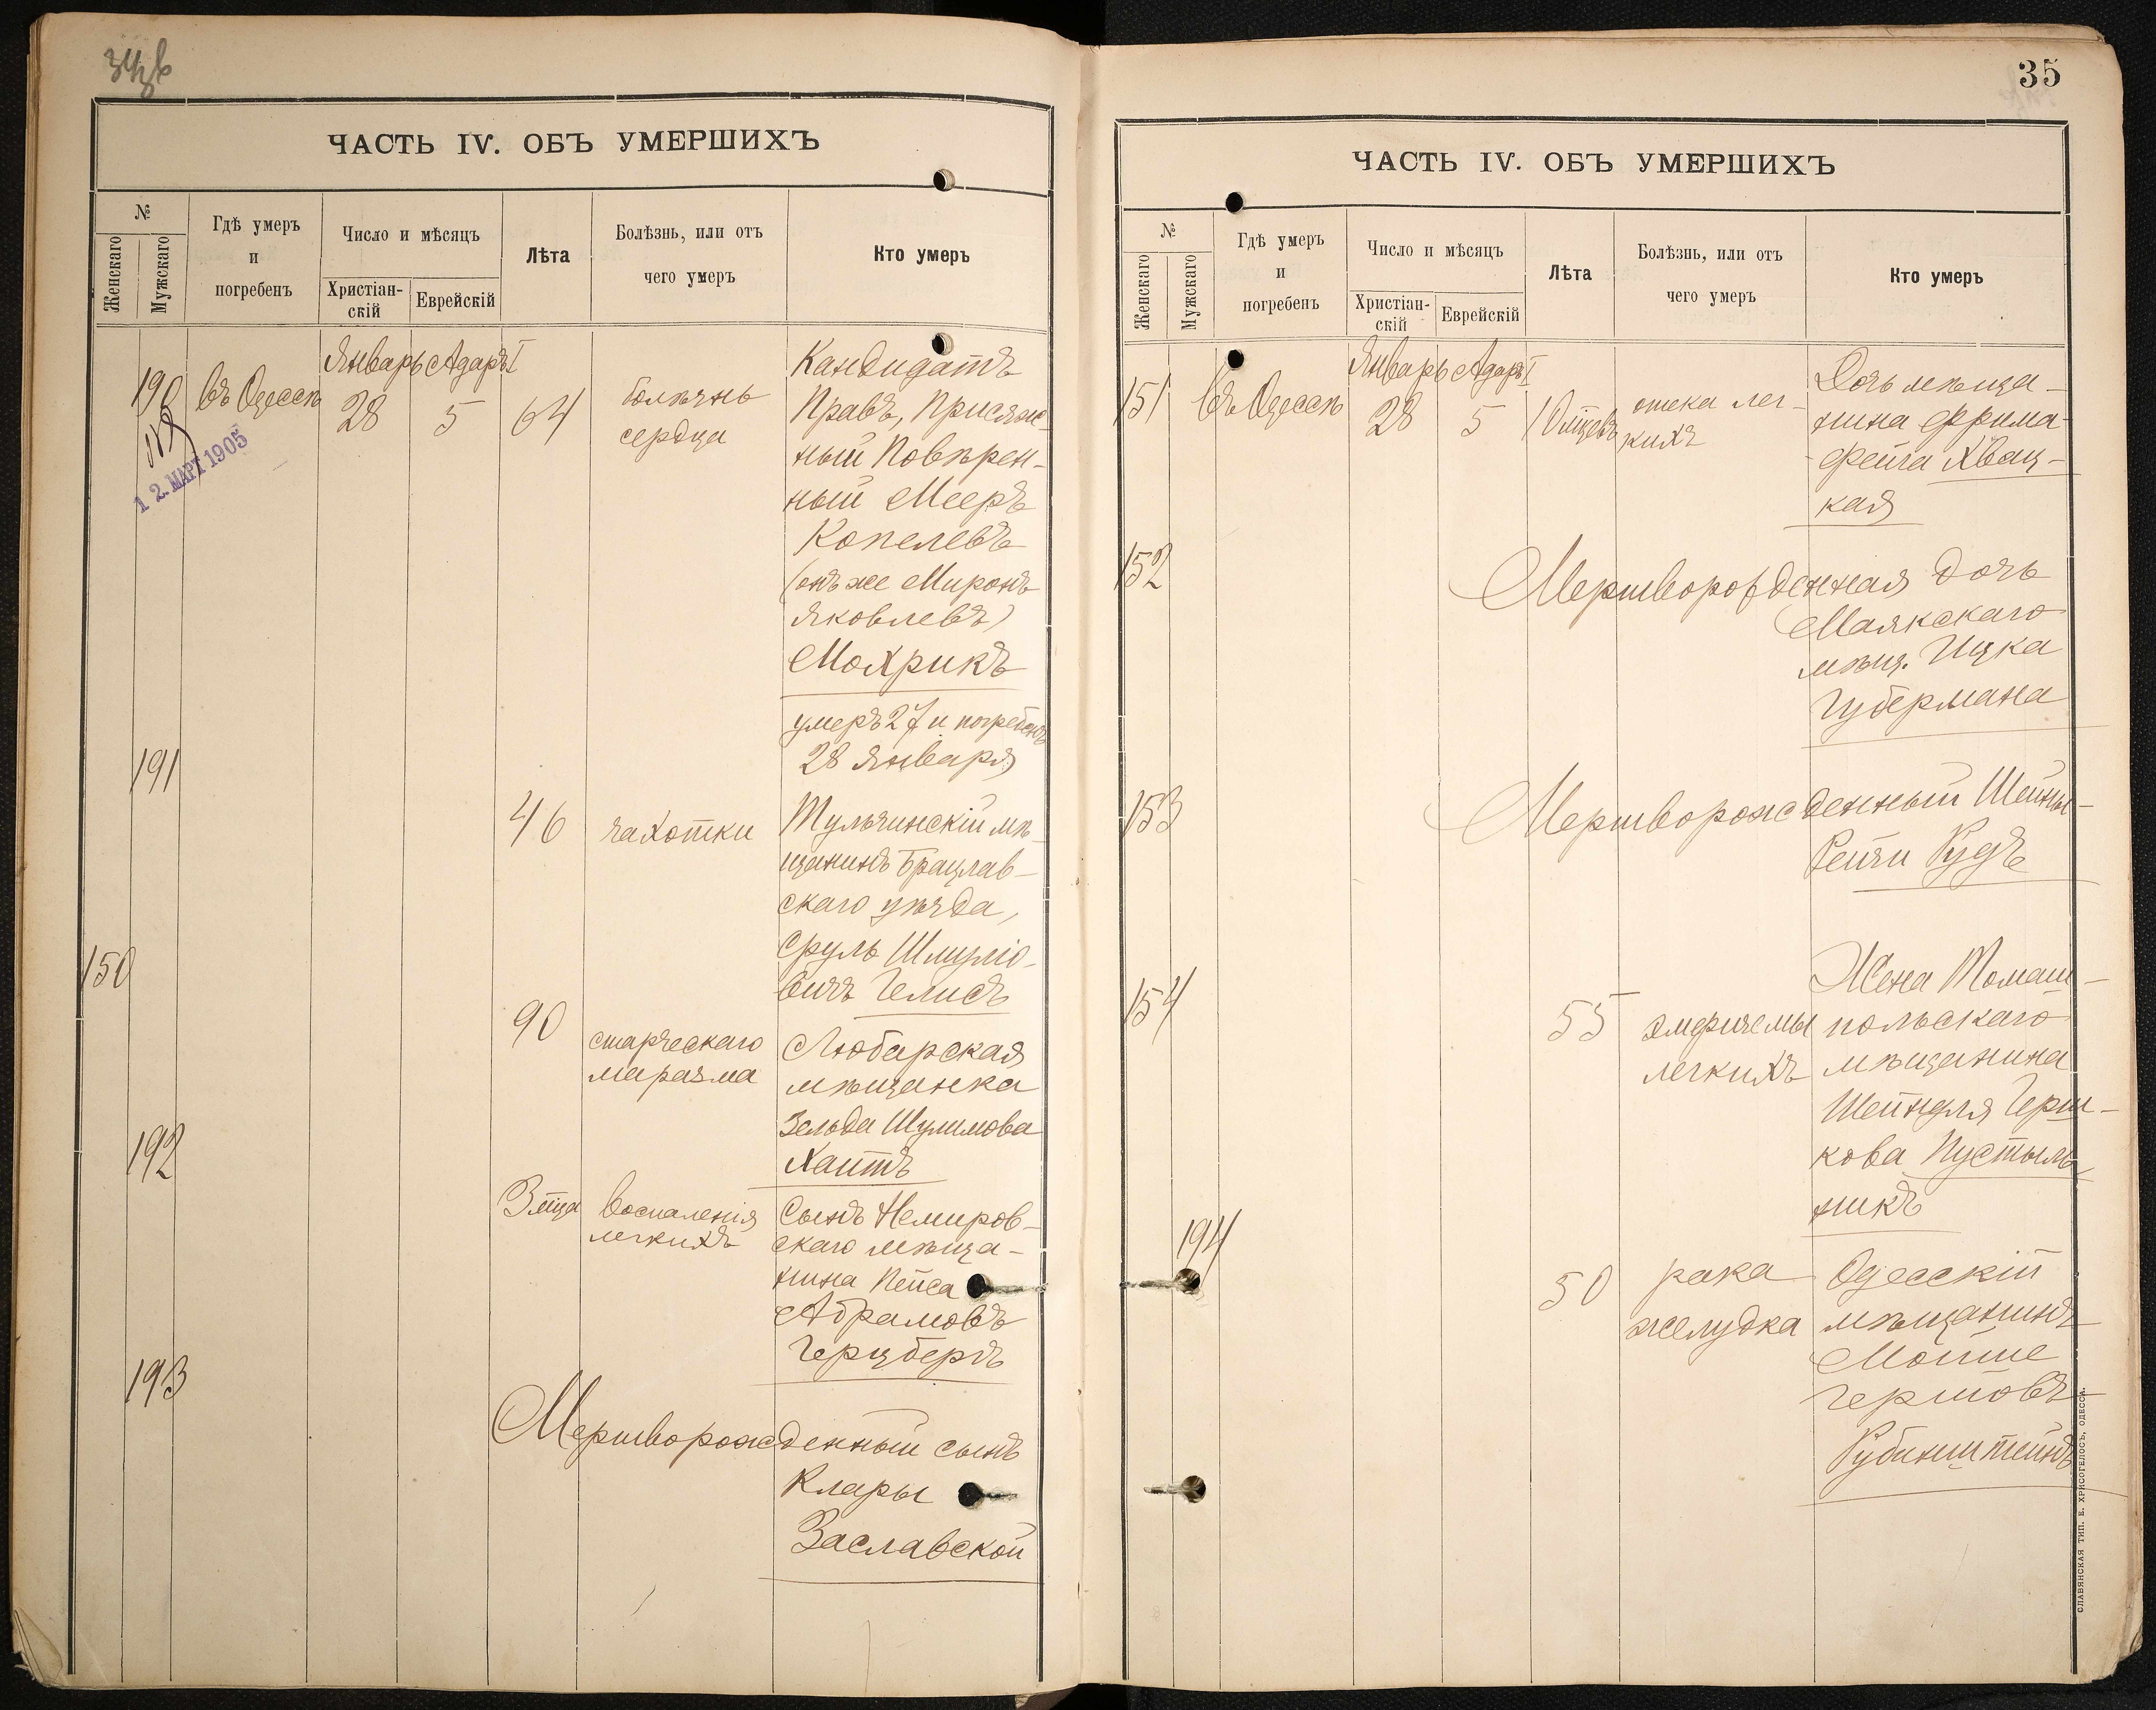 ЧАСТЬ IV. ОБЪ УМЕРШИХЪ
№
Женскаго
Мужскаго
Гдѣ умеръ
и
погребенъ
Число и мѣсяцъ
Христіан-
скій
Еврейскій
Лѣта
Болѣзнь, или отъ
чего умеръ
Кто умеръ
Январь Адаръ I
190 въ Одессѣ 28 5 64
12. МАРТ 1905
болѣзнь
сердца
Кандидатъ
Правъ, Присяж-
ный Повѣрен-
ный Мееръ
Копелевъ
(онъ же Миронъ
Яковлевъ)
Мохрикъ
умеръ 27 и погребенъ
28 Января
191
46 чахотки
Тульчинскій мѣ-
щанинъ Брацлав-
скаго уѣзда,
Сруль Шлиміо-
вичъ Гелисъ
150
90
старческаго
маразма
Любарская
мѣщанка
Зельда Шулимова
Хаитъ
192
3 мца
воспаленія
легкихъ
Сынъ Немиров-
скаго мѣща-
нина Пейса
Абрамовъ
Герцбергъ
193
Мертворожденный сынъ
Клары
Заславской
35
ЧАСТЬ IV. ОБЪ УМЕРШИХЪ
№
Женскаго
Мужскаго
Гдѣ умеръ
и
погребенъ
Число и мѣсяцъ
Христіан-
скій
Еврейскій
Лѣта
Болѣзнь, или отъ
чего умеръ
Кто умеръ
Январь Адаръ I
151 въ Одессѣ 28 5 10 мцевъ
отека лег-
кихъ
Дочь мѣща-
нина Фрима-
Фейга Хвац-
кая
152
Мертворожденная дочь
Маякскаго
мѣщ. Ицка
Губермана
153
Мертворожденный Шейны-
Рейзи Рудъ
154
55
эмфиземы
легкихъ
Жена Томаш-
польскаго
мѣщанина
Шейндля Герш-
кова Пустыль-
никъ
194
50
рака
желудка
Одесскій
мѣщанинъ
Мойше
Гершовъ
Рубинштейнъ
СЛАВЯНСКАЯ ТИП. Е. ХРИСОГЕЛОСЪ, ОДЕССА.